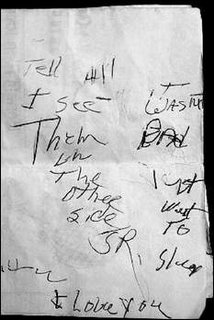 Tell all
I see
Them
on
The
other
side
JR.
I
WASNT
BAD
I just
went
To
Sleep
I Love You